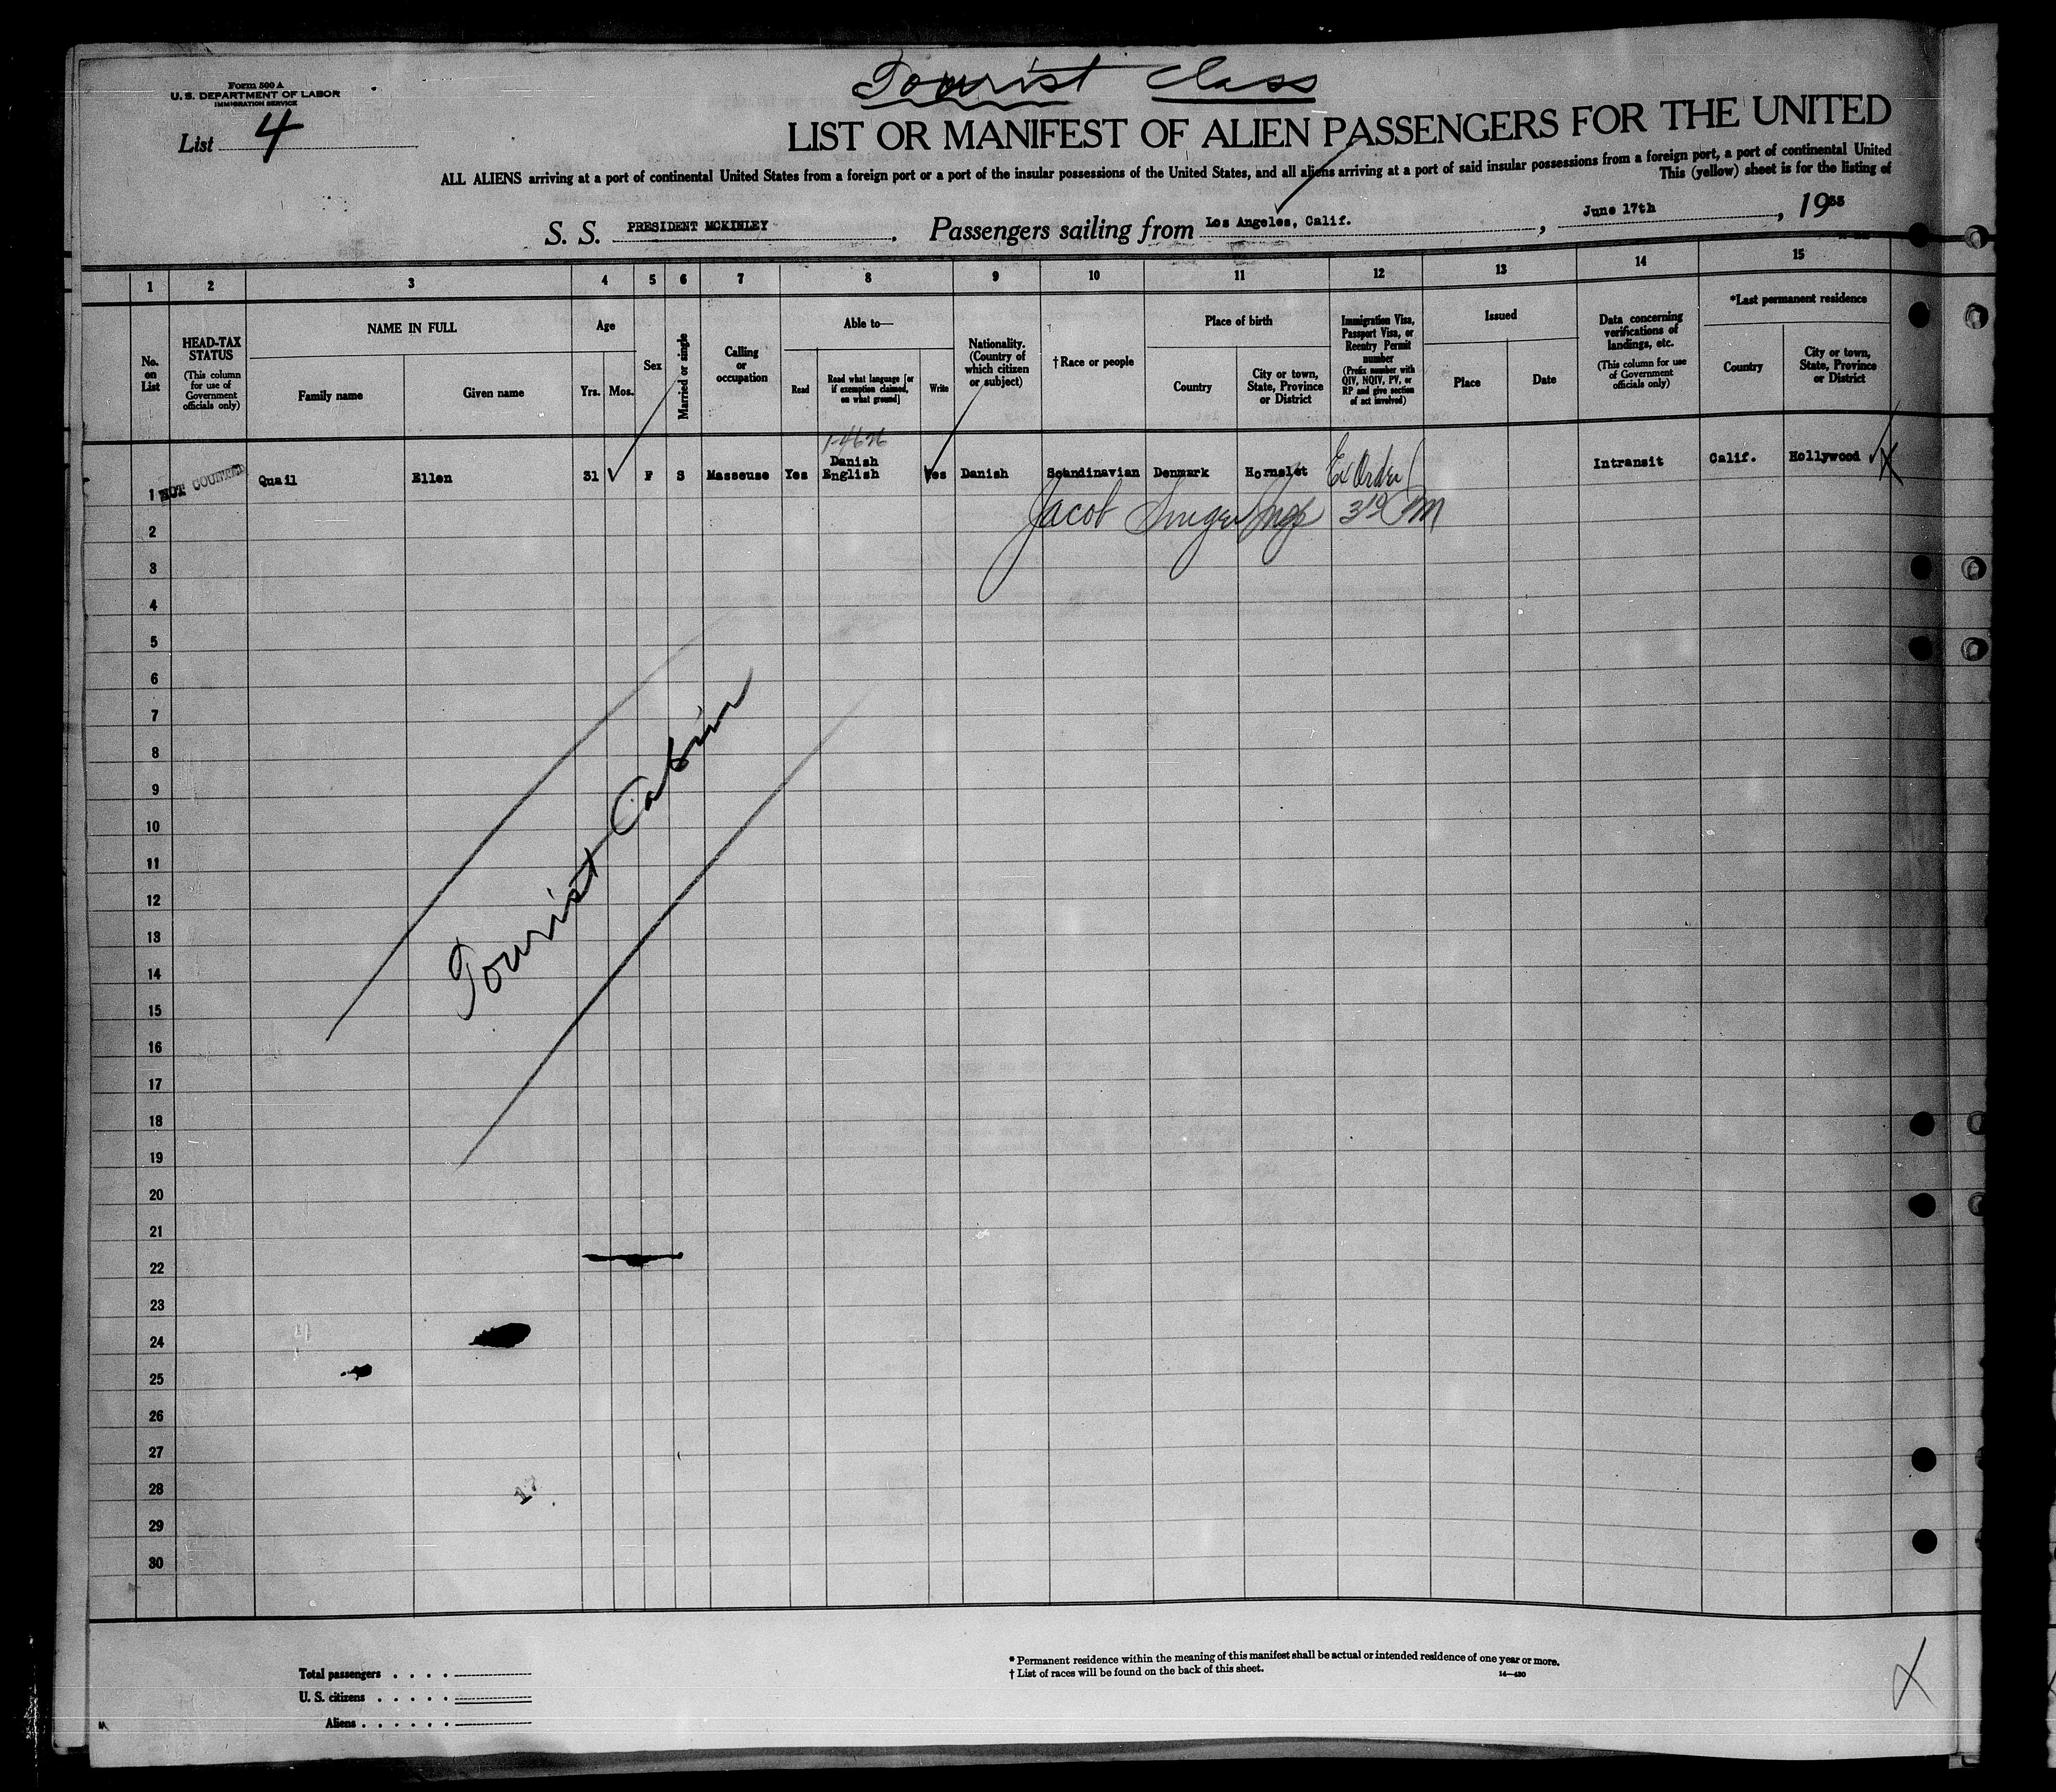 Tourist Class
Form 500 A
U. S. DEPARTMENT OF LABOR
IMMIGRATION SERVICE
List 4
LIST OR MANIFEST OF ALIEN PASSENGERS FOR THE UNITED
ALL ALIENS arriving at a port of continental United States from a foreign port or a port of the insular possessions of the United States, and all aliens arriving at a port of said insular possessions from a foreign port, a port of continental United
This (yellow) sheet is for the listing of
S. S. PRESIDENT MCKINLEY . Passengers sailing from Los Angeles, Calif. , June 17th , 1935
1 2 3 4 5 6 7 8 9 10 11 12 13 14 15
No. on List
HEAD-TAX STATUS
(This column for use of Government officials only)
NAME IN FULL
Family name
Given name
Age
Yrs.
Mos.
Sex
Married or single
Calling or occupation
Able to—
Read
Read what language [or if exemption claimed, on what ground]
Write
Nationality. (Country of which citizen or subject)
†Race or people
Place of birth
Country
City or town, State, Province or District
Immigration Visa, Passport Visa, or Reentry Permit number
(Prefix number with QIV, NQIV, PV, or RP and give section of act involved)
Issued
Place
Date
Data concerning verifications of landings, etc.
(This column for use of Government officials only)
*Last permanent residence
Country
City or town, State, Province or District
1 NOT COUNTED Quail Ellen 31 F S Masseuse Yes Danish English Yes Danish Scandinavian Denmark Hornslet Intransit Calif. Hollywood
Jacob
2
3
4
5
6
7
8
9
10
11
12
13
14
15
16
17
18
19
20
21
22
23
24
25
26
27
28
29
30
Tourist Cabin
17
Total passengers . . . .
U. S. citizens . . . . .
Aliens . . . . . .
* Permanent residence within the meaning of this manifest shall be actual or intended residence of one year or more.
† List of races will be found on the back of this sheet.
14—430